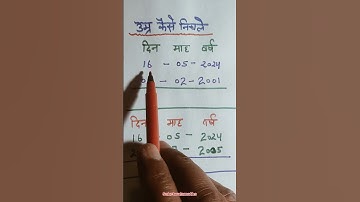 उम्र कैसे निकले
दिन माह वर्ष
16 - 05 - 2024
- 02 - 2001
दिन माह वर्ष
16 - 05 - 2024